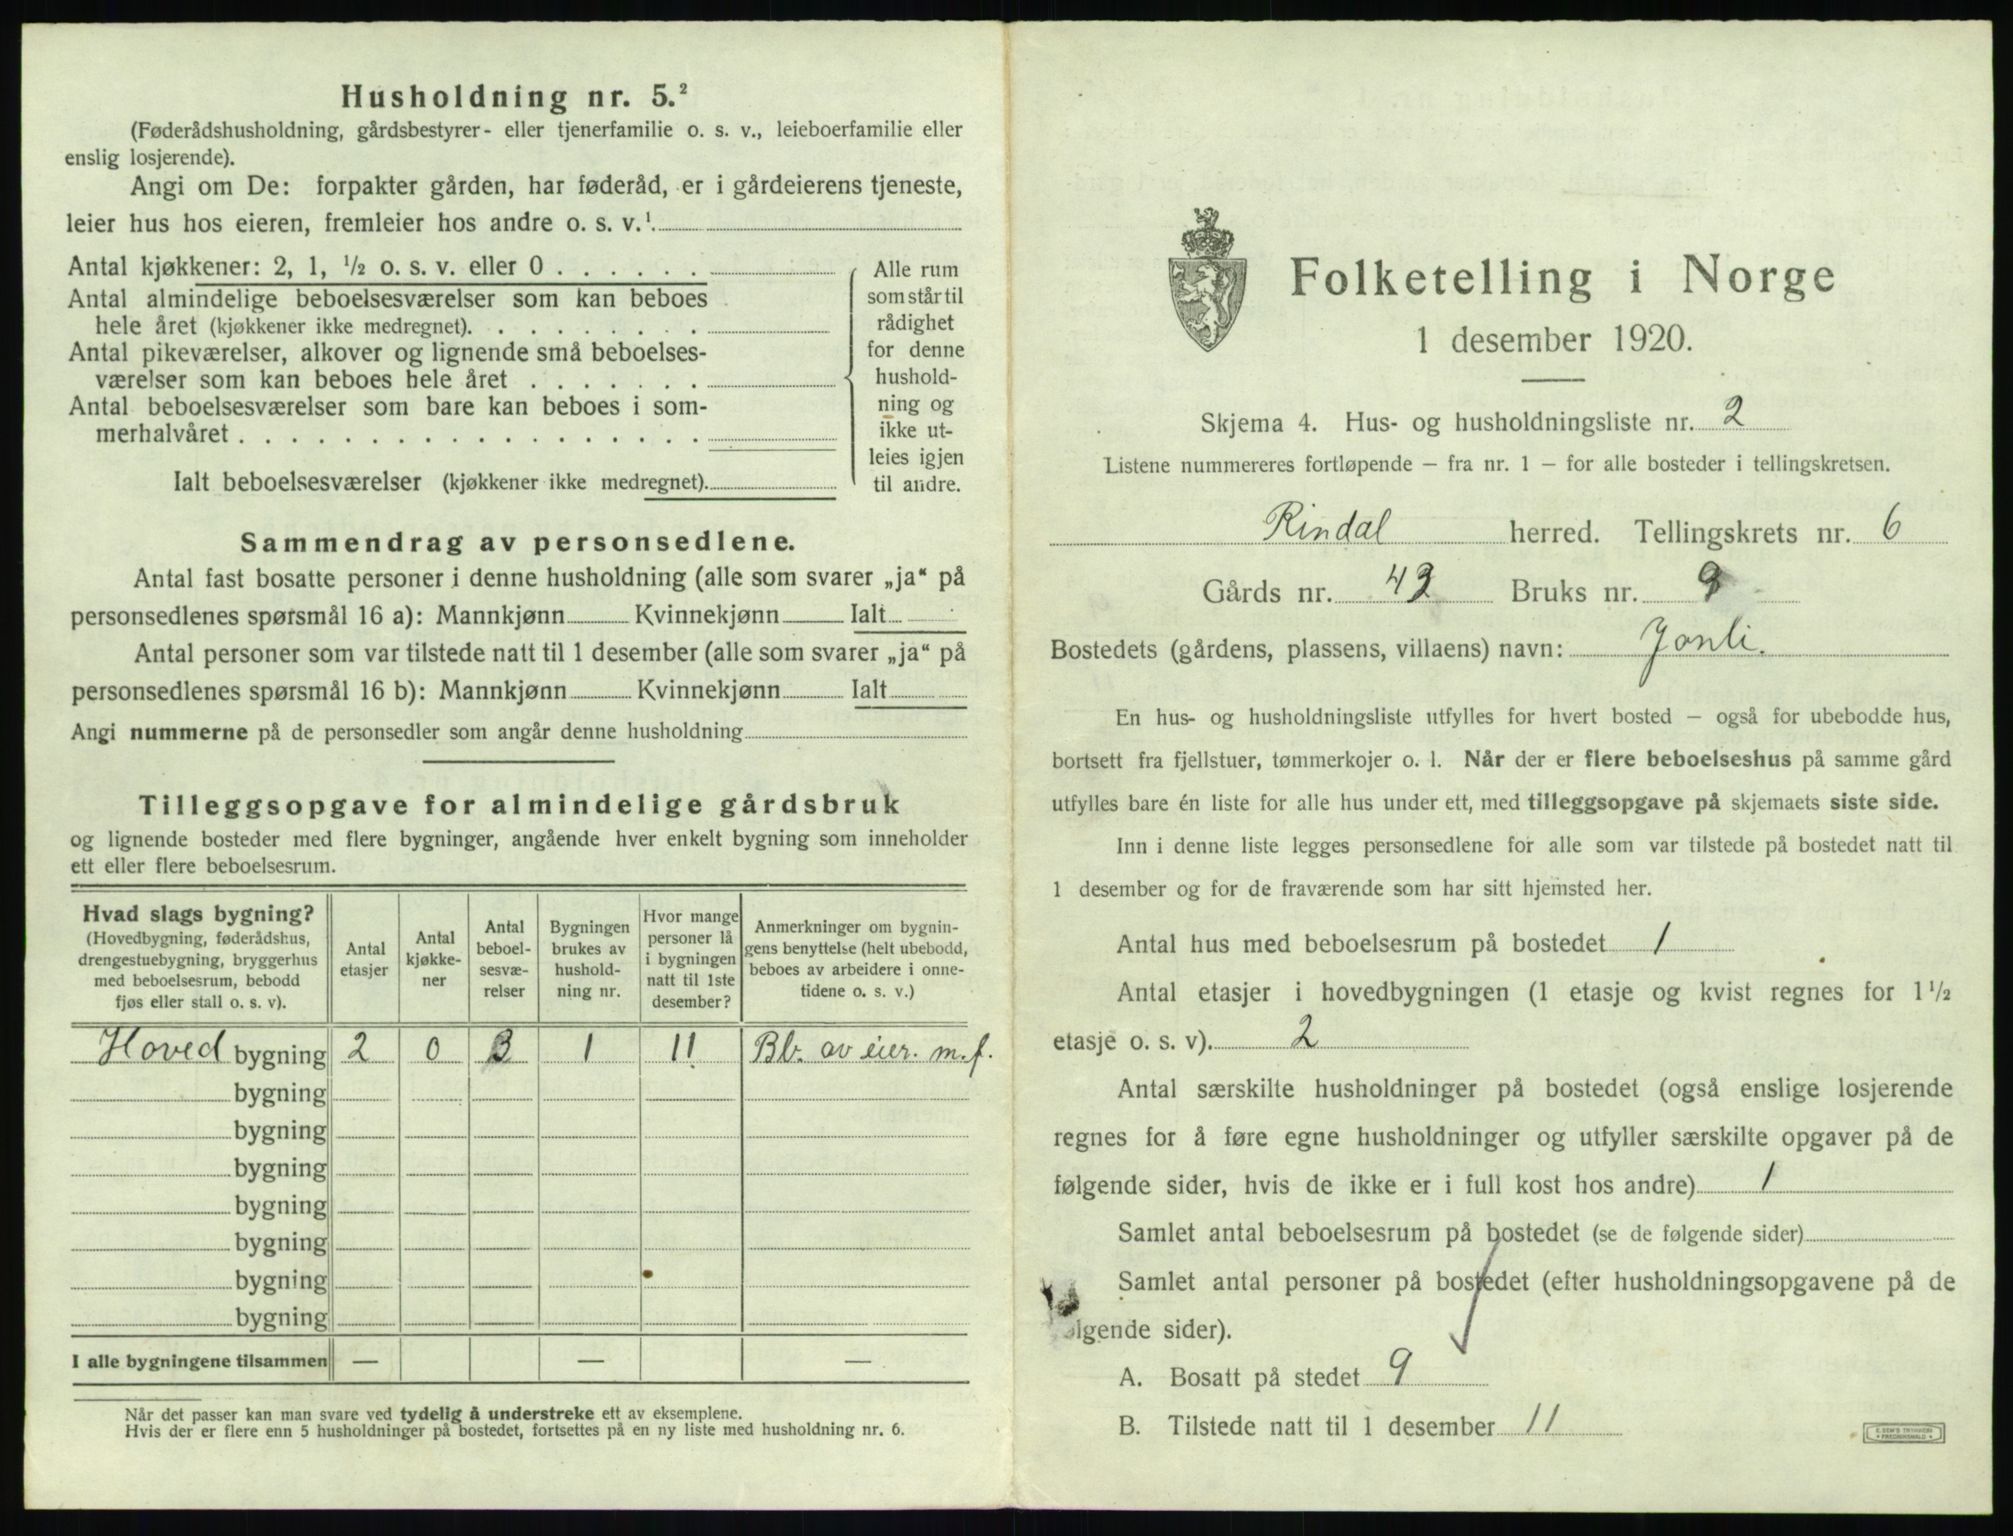 Husholdning nr. 5.²
(Føderådshusholdning, gårdsbestyrer- eller tjenerfamilie o. s. v., leieboerfamilie eller
enslig losjerende).
Angi om De: forpakter gården, har føderåd, er i gårdeierens tjeneste,
leier hus hos eieren, fremleier hos andre o. s. v.¹
Antal kjøkkener: 2, 1, ½ o. s. v. eller 0 . . . . . .
Antal almindelige beboelsesværelser som kan beboes
hele året (kjøkkener ikke medregnet). . . . . . . . .
Antal pikeværelser, alkover og lignende små beboelses-
værelser som kan beboes hele året . . . . . . .
Antal beboelsesværelser som bare kan beboes i som-
merhalvåret . . . . . . . . . . . . . . . . . .
Ialt beboelsesværelser (kjøkkener ikke medregnet).
Alle rum
som står til
rådighet
for denne
hushold-
ning og
ikke ut-
leies igjen
til andre.
Sammendrag av personsedlene.
Antal fast bosatte personer i denne husholdning (alle som svarer „ja“ på
personsedlenes spørsmål 16 a): Mannkjønn Kvinnekjønn Ialt
Antal personer som var tilstede natt til 1 desember (alle som svarer „ja“ på
personsedlenes spørsmål 16 b): Mannkjønn Kvinnekjønn Ialt
Angi nummerne på de personsedler som angår denne husholdning
Tilleggsopgave for almindelige gårdsbruk
og lignende bosteder med flere bygninger, angående hver enkelt bygning som inneholder
ett eller flere beboelsesrum.
Hvad slags bygning?
(Hovedbygning, føderådshus,
drengestuebygning, bryggerhus
med beboelsesrum, bebodd
fjøs eller stall o. s. v).
Antal
etasjer
Antal
kjøkke-
ner
Antal
beboel-
sesvæ-
relser
Bygningen
brukes av
hushold-
ning nr.
Hvor mange
personer lå
i bygningen
natt til 1ste
desember?
Anmerkninger om bygnin-
gens benyttelse (helt ubebodd,
beboes av arbeidere i onne-
tidene o. s. v.)
Hoved bygning 2 0 3 1 11 Bb. av eier. m. f.
bygning
bygning
bygning
bygning
bygning
bygning
bygning
I alle bygningene tilsammen — — —
Når det passer kan man svare ved tydelig å understreke ett av eksemplene.
Hvis der er flere enn 5 husholdninger på bostedet, fortsettes på en ny liste med husholdning nr. 6.
Folketelling i Norge
1 desember 1920.
Skjema 4. Hus- og husholdningsliste nr. 2
Listene nummereres fortløpende – fra nr. 1 – for alle bosteder i tellingskretsen.
Rindal herred. Tellingskrets nr. 6
Gårds nr. 42 Bruks nr. 9
Bostedets (gårdens, plassens, villaens) navn: Jonli.
En hus- og husholdningsliste utfylles for hvert bosted – også for ubebodde hus,
bortsett fra fjellstuer, tømmerkojer o. l. Når der er flere beboelseshus på samme gård
utfylles bare én liste for alle hus under ett, med tilleggsopgave på skjemaets siste side.
Inn i denne liste legges personsedlene for alle som var tilstede på bostedet natt til
1 desember og for de fraværende som har sitt hjemsted her.
Antal hus med beboelsesrum på bostedet 1
Antal etasjer i hovedbygningen (1 etasje og kvist regnes for 1½
etasje o. s. v). 2
Antal særskilte husholdninger på bostedet (også enslige losjerende
regnes for å føre egne husholdninger og utfyller særskilte opgaver på de
følgende sider, hvis de ikke er i full kost hos andre) 1
Samlet antal beboelsesrum på bostedet (se de følgende sider)
Samlet antal personer på bostedet (efter husholdningsopgavene på de
følgende sider).
A. Bosatt på stedet 9
B. Tilstede natt til 1 desember 11
E. SEM'S TRYKKERI
• FREDRIKSHALD •